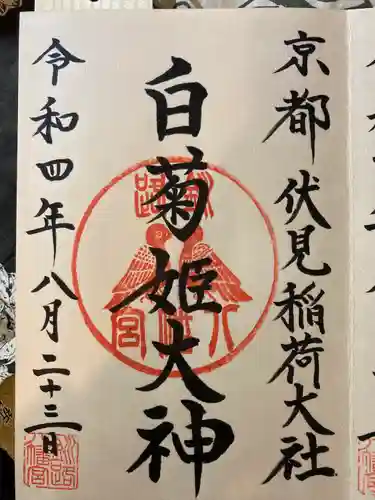 京都 伏見稲荷大社
白菊姫大神
令和四年八月二十三日